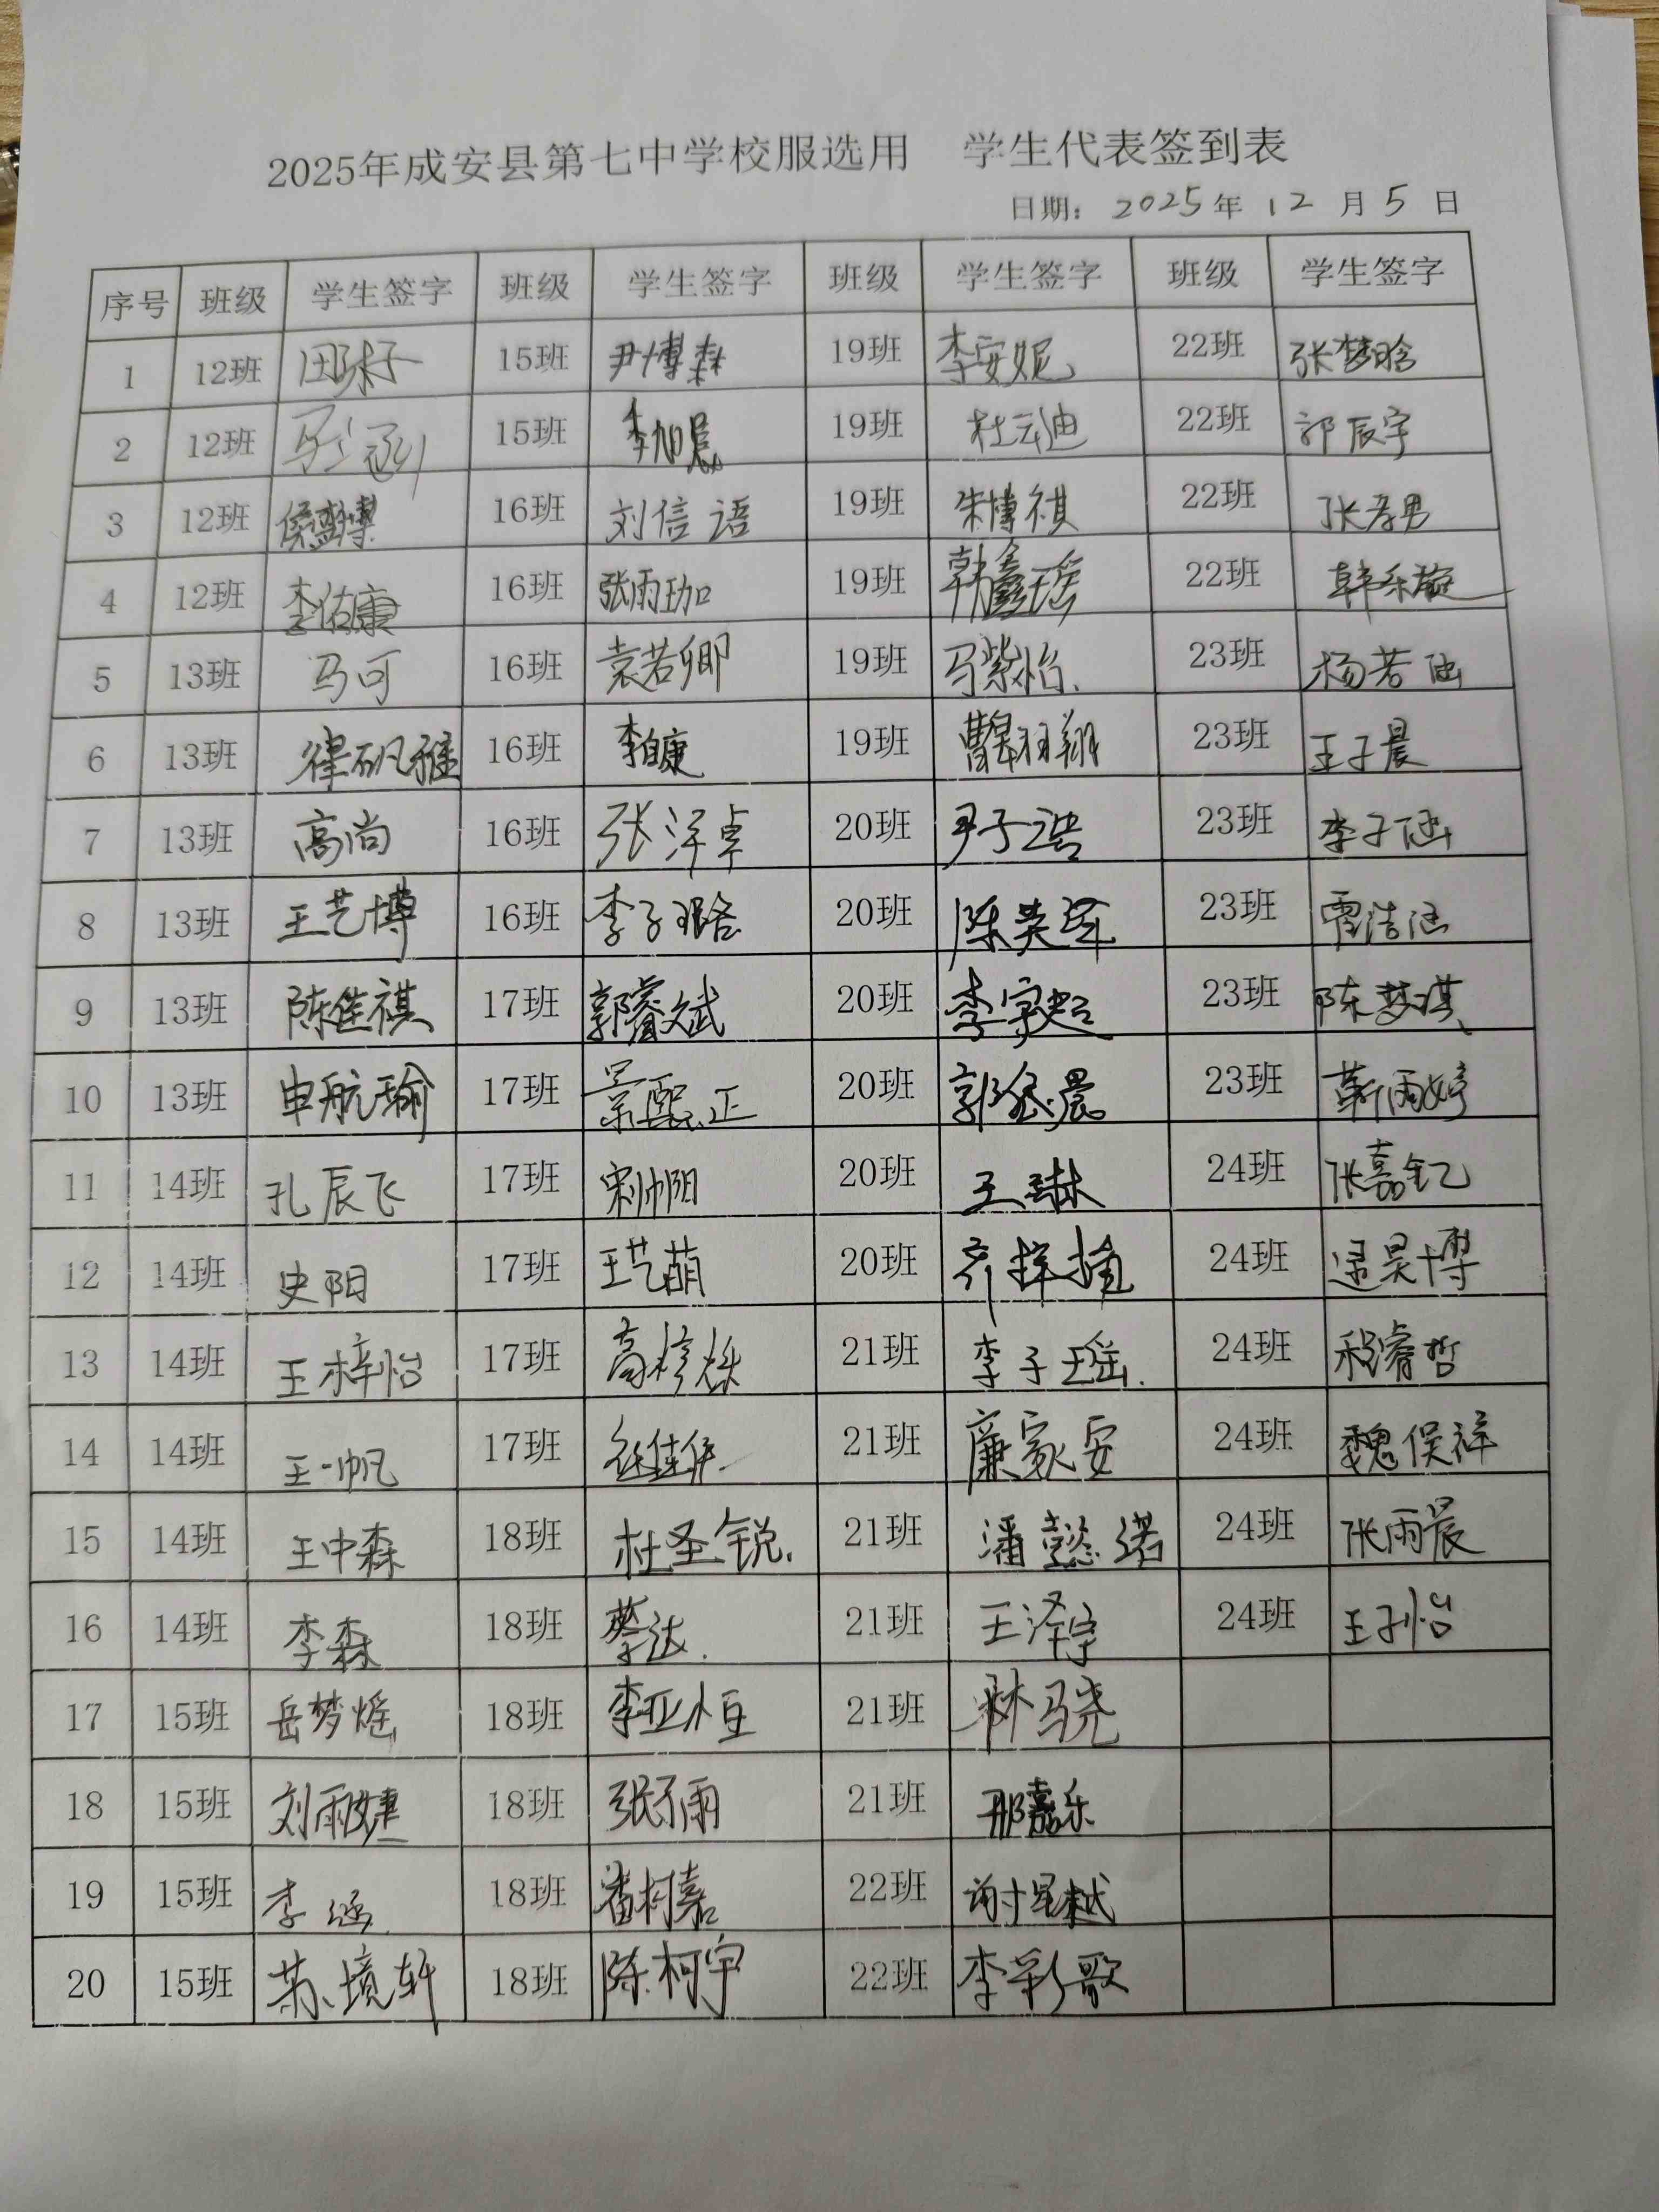 2025年成安县第七中学校服选用 学生代表签到表
日期：2025年12月5日
序号 班级 学生签字 班级 学生签字 班级 学生签字 班级 学生签字
1 12班 15班 尹博森 19班 李安妮 22班 张梦晗
2 12班 15班 李旭晨 19班 杜云迪 22班 郭辰宇
3 12班 侯盛博 16班 刘信语 19班 朱博祺 22班 张孝男
4 12班 李佑康 16班 张雨珈 19班 韩鑫瑶 22班 韩乐璇
5 13班 马可 16班 袁若卿 19班 马紫怡 23班 杨若涵
6 13班 律矾雅 16班 李自康 19班 曹皋羽翔 23班 王子晨
7 13班 高尚 16班 张洋卓 20班 尹子浩 23班 李子涵
8 13班 王艺博 16班 李子璐 20班 陈美珲 23班 霍浩涵
9 13班 陈佳祺 17班 郭睿斌 20班 李宗超 23班 陈梦琪
10 13班 申航瑜 17班 景熙正 20班 晨 23班 靳雨婷
11 14班 孔辰飞 17班 宋帅阳 20班 王琳 24班 张嘉钇
12 14班 史阳 17班 王艺萌 20班 齐择 24班 逯昊博
13 14班 王梓怡 17班 高 烁 21班 李子瑶 24班 程睿哲
14 14班 王一帆 17班 任佳伊 21班 廉家安 24班 魏俣祥
15 14班 王中森 18班 杜圣锐 21班 潘懿诺 24班 张雨晨
16 14班 李森 18班 蔡达 21班 王泽宇 24班 王子怡
17 15班 岳梦煋 18班 李亚恒 21班 林骁
18 15班 刘雨婕 18班 张子雨 21班 邢嘉乐
19 15班 李涵 18班 番柯嘉 22班 谢昆越
20 15班 苏境轩 18班 陈柯宇 22班 李彩歌